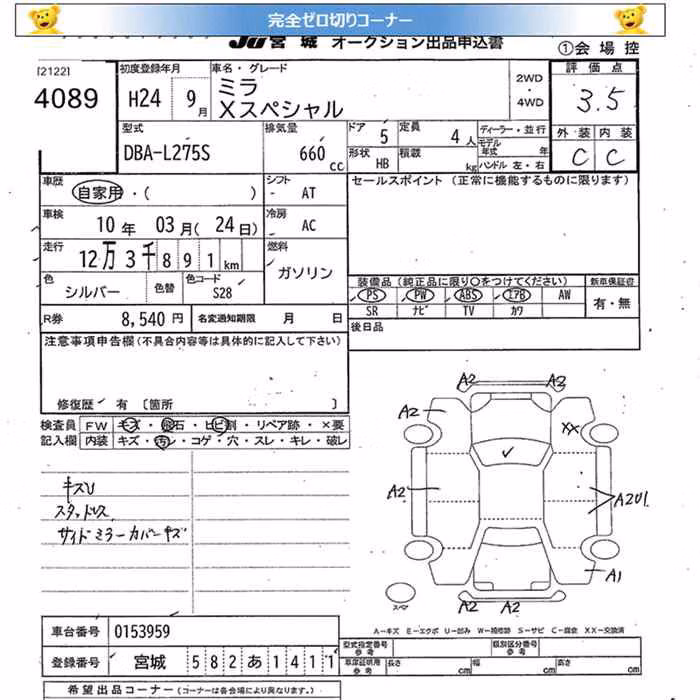 完全ゼロ切りコーナー
JU宮城 オークション出品申込書
①会場控
[2122]
4089
初度登録年月
H24 9月
車名・グレード
ミラ
Xスペシャル
2WD
・
4WD
評価点
3.5
外装 内装
C C
型式
DBA-L275S
排気量
660 cc
ドア 5
形状 HB
定員 4人
積載 kg
ディーラー・並行
モデル年式 年
ハンドル 左・右
車歴
自家用・( )
シフト
- AT
セールスポイント (正常に機能するものに限ります)
車検
10年 03月(24日)
冷房
AC
走行
12万3千891km
燃料
ガソリン
色
シルバー
色替
色コード
S28
装備品(純正品に限り○をつけてください)
新車保証書
有・無
PS PW ABS エアB AW
SR ナビ TV カワ
R券 8,540円
名変通知期限 月 日
後日品
注意事項申告欄(不具合内容等は具体的に記入して下さい)
修復歴・有〔箇所 〕
検査員
記入欄
FW キズ・飛石・ヒビ割・リペア跡・×要
内装 キズ・汚レ・コゲ・穴・スレ・キレ・破レ
キズU
スタッドレス
サイドミラーカバーキズ
A2 A2
A2 XX
A2
A2U1
A1
A2 A2
スペア
A-キズ E-エクボ U-凹み W-補修跡 S-サビ C-腐食 XX-交換済
車台番号 0153959
登録番号 宮城 582あ1411
型式指定番号
参考
類別区分番号
参考
車庫証明用
参考
長さ cm 幅 cm 高さ cm
希望出品コーナー(コーナーは各会場により異なります。)